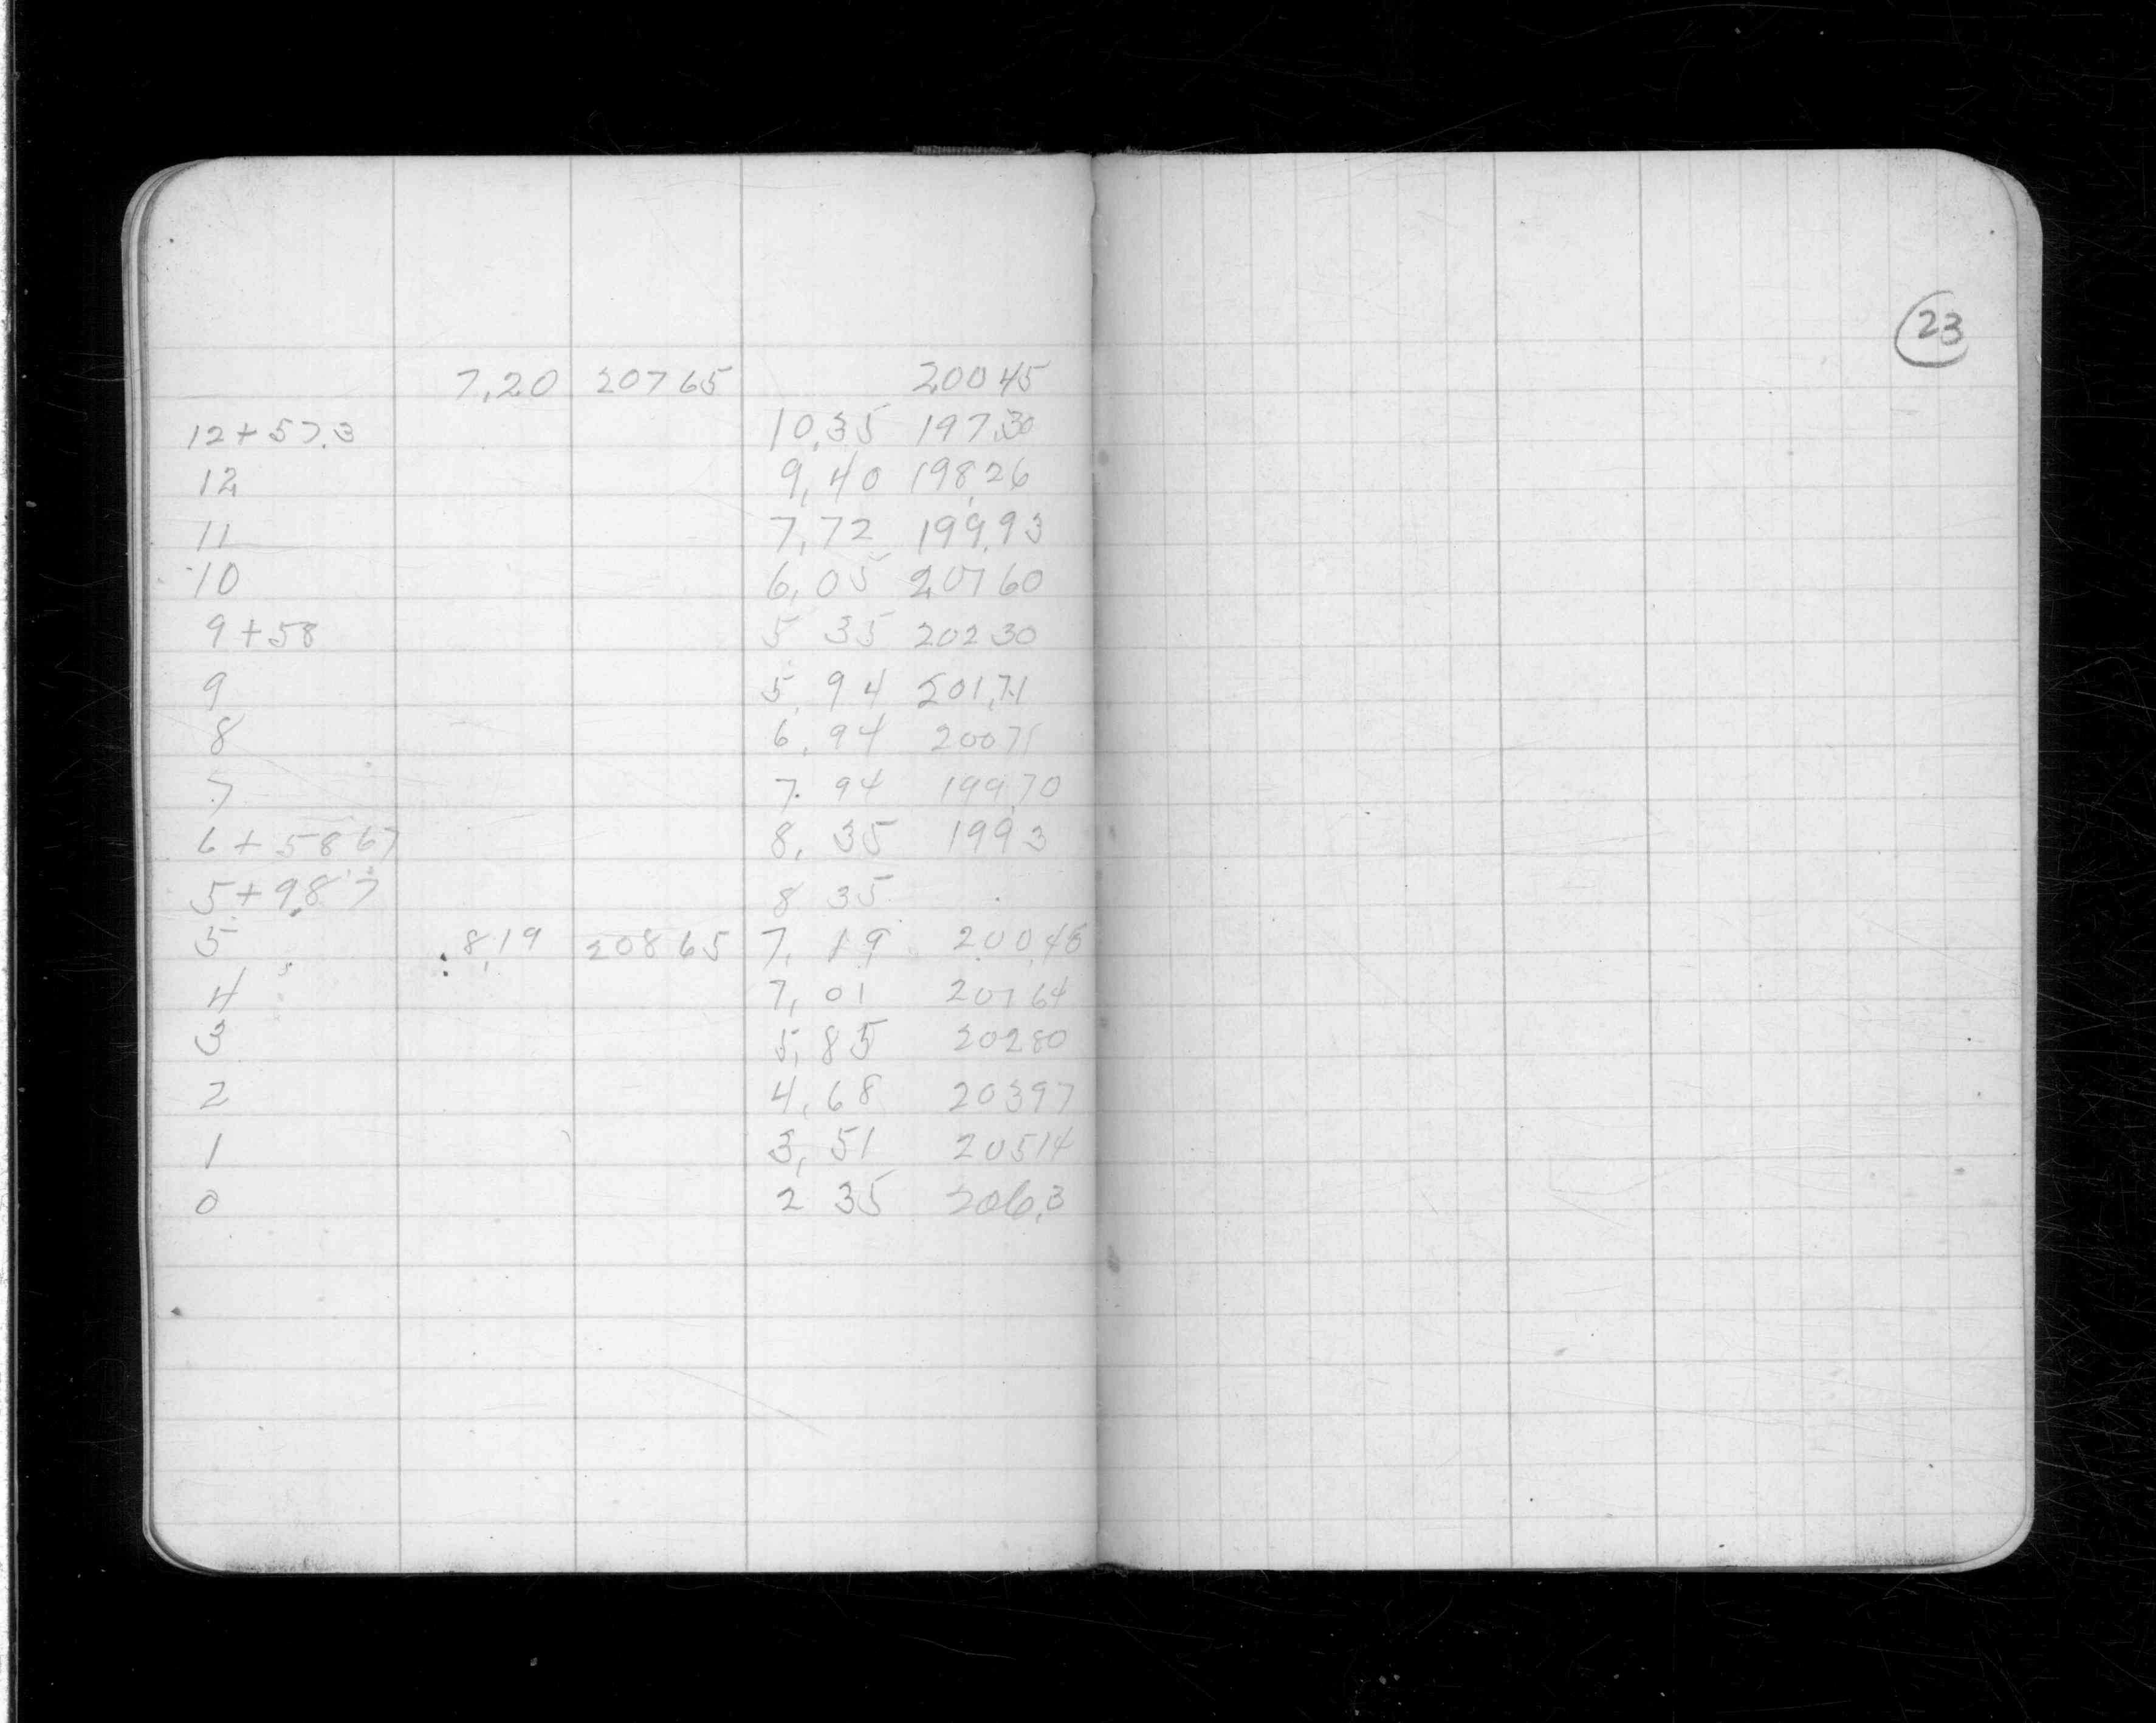 23
7,20 20765 20045
12+57.3 10,35 197,30
12 9,40 198,26
11 7,72 199,93
10 6,05 20160
9+58 5 35 20230
9 5,94 201,71
8 6,94 20071
7 7.94 199,70
6+5867 8,35 1993
5+98.7 8 35
5 8,19 20865 7,19 200,46
4 7,01 20164
3 5,85 20280
2 4,68 20397
1 3,51 20514
0 2 35 206,3